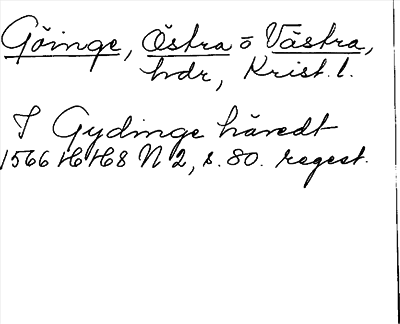 Göinge, Östra o Västra,
hdr, Krist. l.
I Gydinge häredt
1566 HH 8 N 2, s. 80. regest.